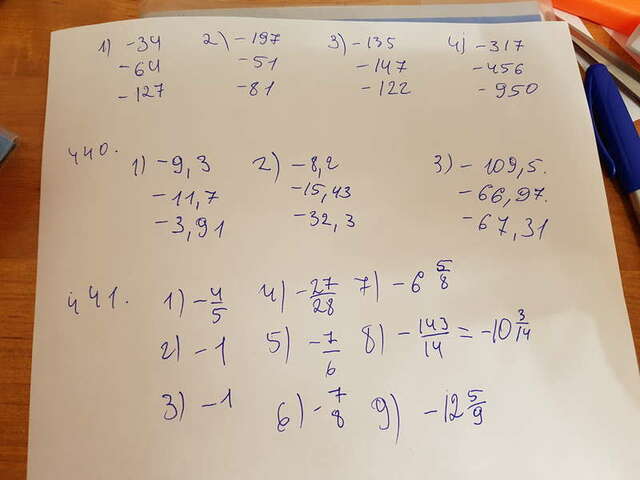 1) -34 2) -197 3) -135 4) -317
-64 -51 -147 -456
-127 -81 -122 -950
440. 1) -9,3 2) -8,2 3) -109,5.
-11,7 -15,43 -66,97.
-3,91 -32,3 -67,31
441. 1) -4/5 4) -27/28 7) -6 5/8
2) -1 5) -7/6 8) -143/14 = -10 3/14
3) -1 6) -7/8 9) -12 5/9